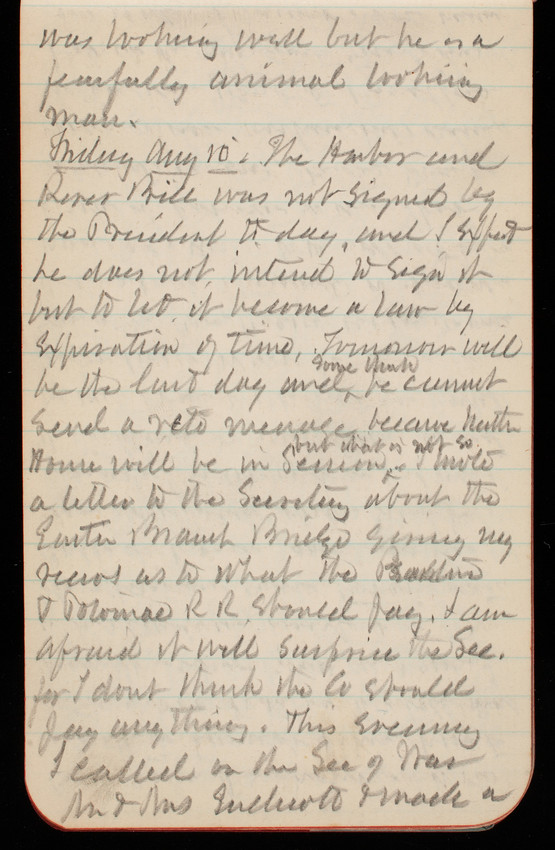 was looking well but he is a
fearfully animal looking
man.
Friday Aug 10. The Harbor and
River Bill was not signed by
the President to day, and I expect
he does not intend to sign it
but to let it become a law by
expiration of time. Tomorrow will
be the last day and some think he cannot
send a veto message because neither
House will be in Session, but that is not so. I wrote
a letter to the Secretary about the
Eastern Branch Bridge giving my
views as to what the
& Potomac R R should pay. I am
afraid it will surprise the Sec.
for I dont think the Co should
pay anything. This evening
I called on the Sec of War
Mr & Mrs Endicott & made a